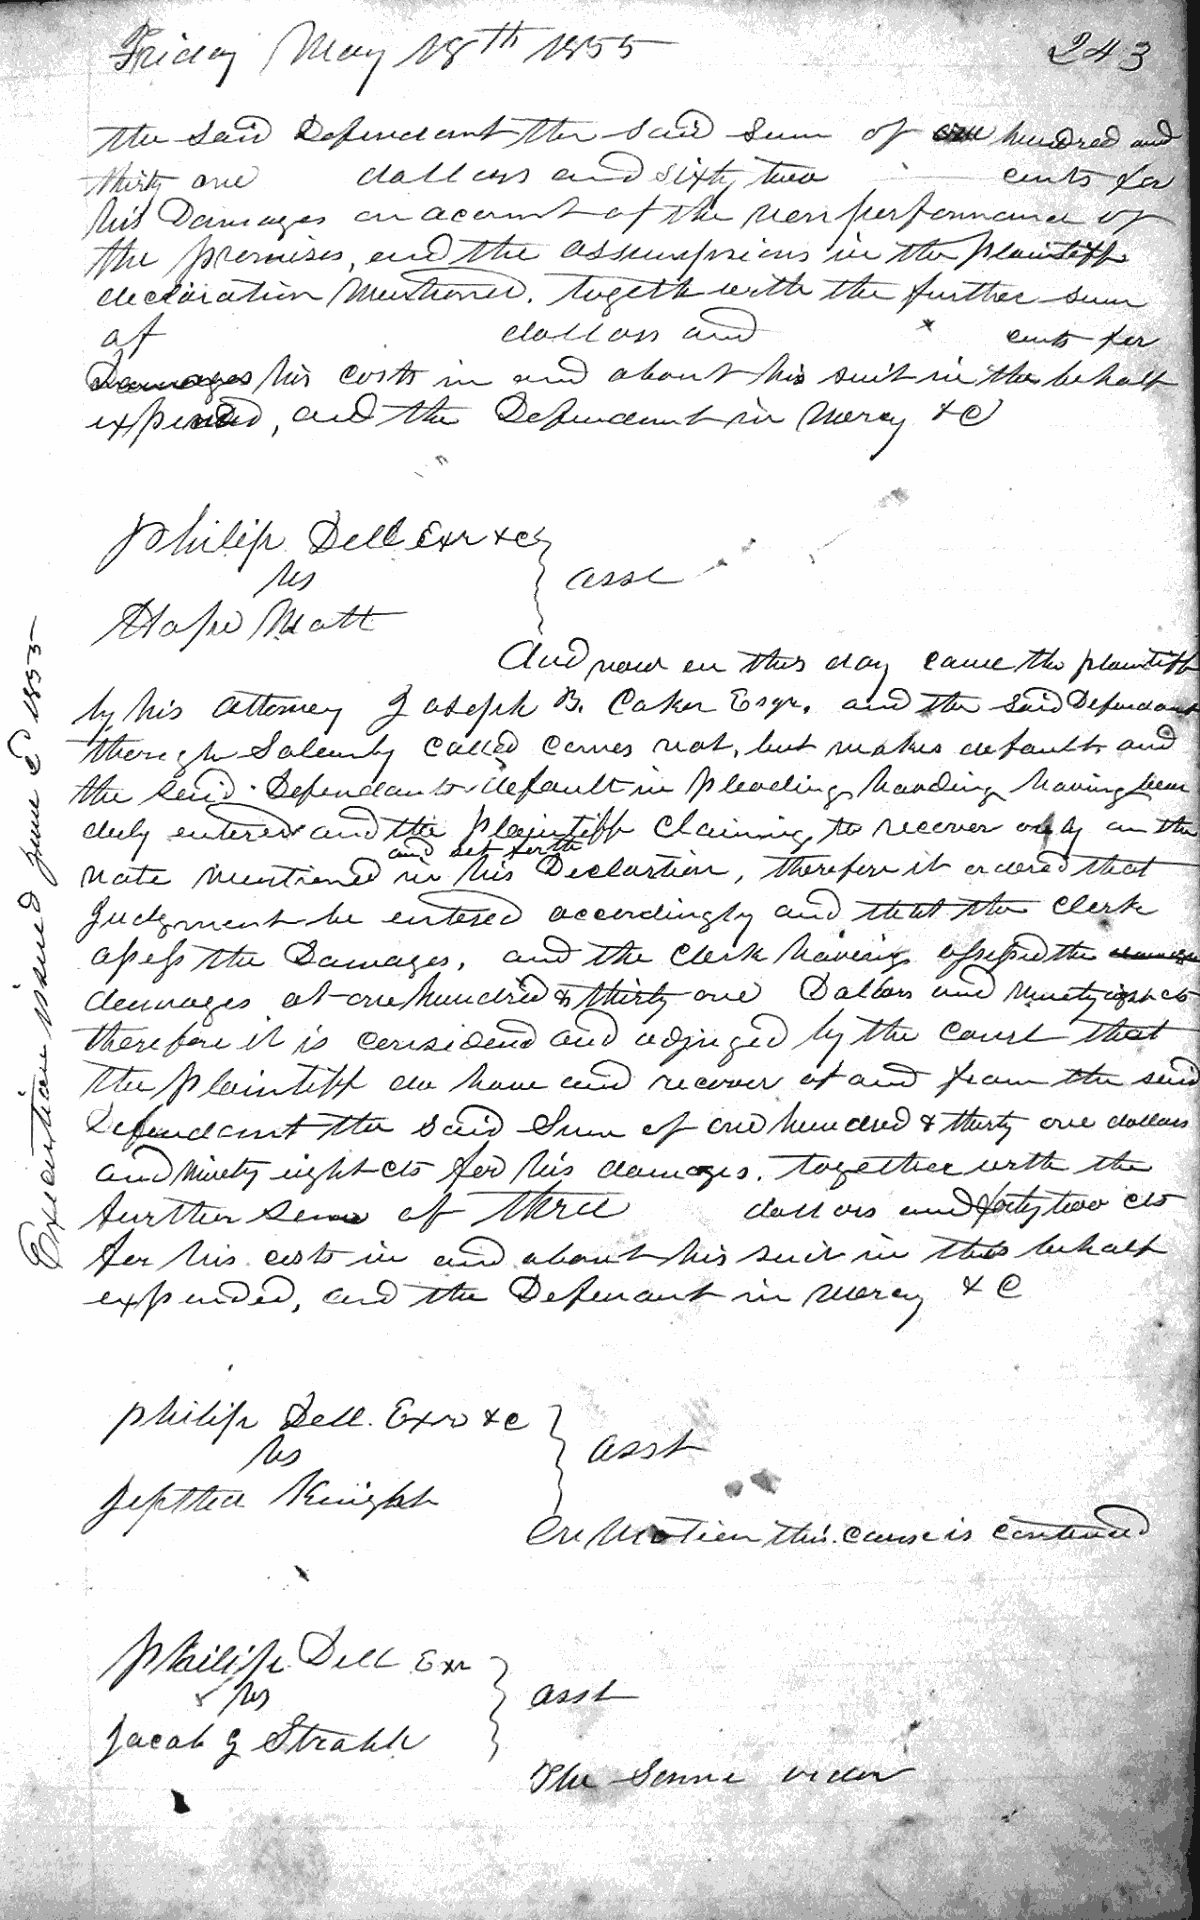 Friday May 18th 1855
243
the said Defendant the said sum of one hundred and
thirty one dollars and sixty two cents for
his Damages on acount of the non performance of
the promises, and the assumpsions in the plaintiff
declaration Mentioned. togeth with the further sum
of dollars and cents for
Damages his costs in and about his suit in the behalf
expended, and the Defendant in mercy &C
Philip Dell Exr &c
vs
asst
Hope Mott
And now on this day came the plaintiff
by his attorney Joseph B. Coker Esqr. and the said Defendant
though Solemnly called comes not, but makes default and
the said Defendants default in pleading having been
duly entered and the plaintiff claiming to recover only on the
and set forth
note mentioned in his Declartion, therefore it ordered that
Judgment be entered accordingly and that the clerk
assess the Damages, and the clerk having assessed the
damages at one hundred & thirty one Dollars and ninety eight cts
therefore it is considerd and adjuged by the court that
the plaintiff do have and recover of and from the said
Defendant the said Sum of one hundred & thirty one dollars
and ninety eight cts for his damages. together with the
further sum of three dollars and forty two cts
for his costs in and about his suit in this behalf
expended, and the Defenant in mercy & C
Execution issued June 5 1855
Philip Dell. Exr &c
vs
asst
Jepthea Knight
On Motion this cause is contined
Philip Dell Exr
vs
asst
Jacob G Strahk
The Same order